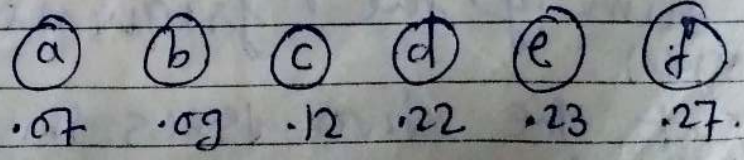 a b c d e f
.07 .09 .12 .22 .23 .27.